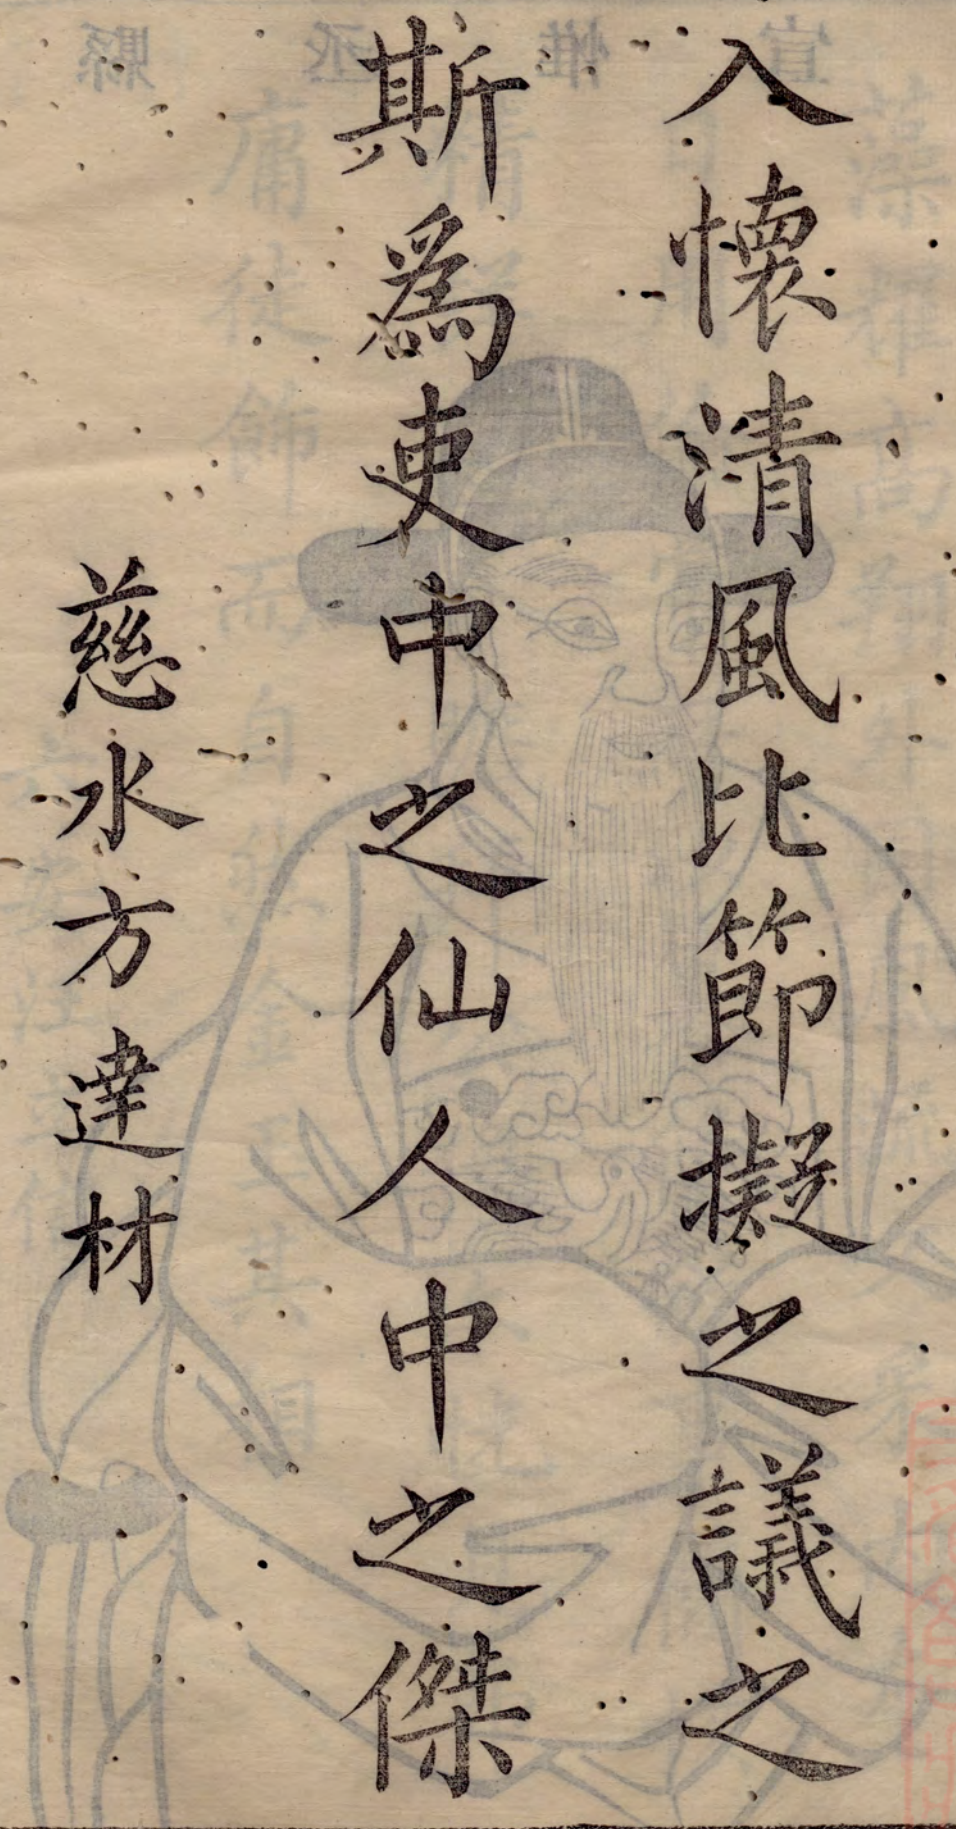 入懷清風比節擬之議之
斯為吏中之仙人中之傑
慈水方達材